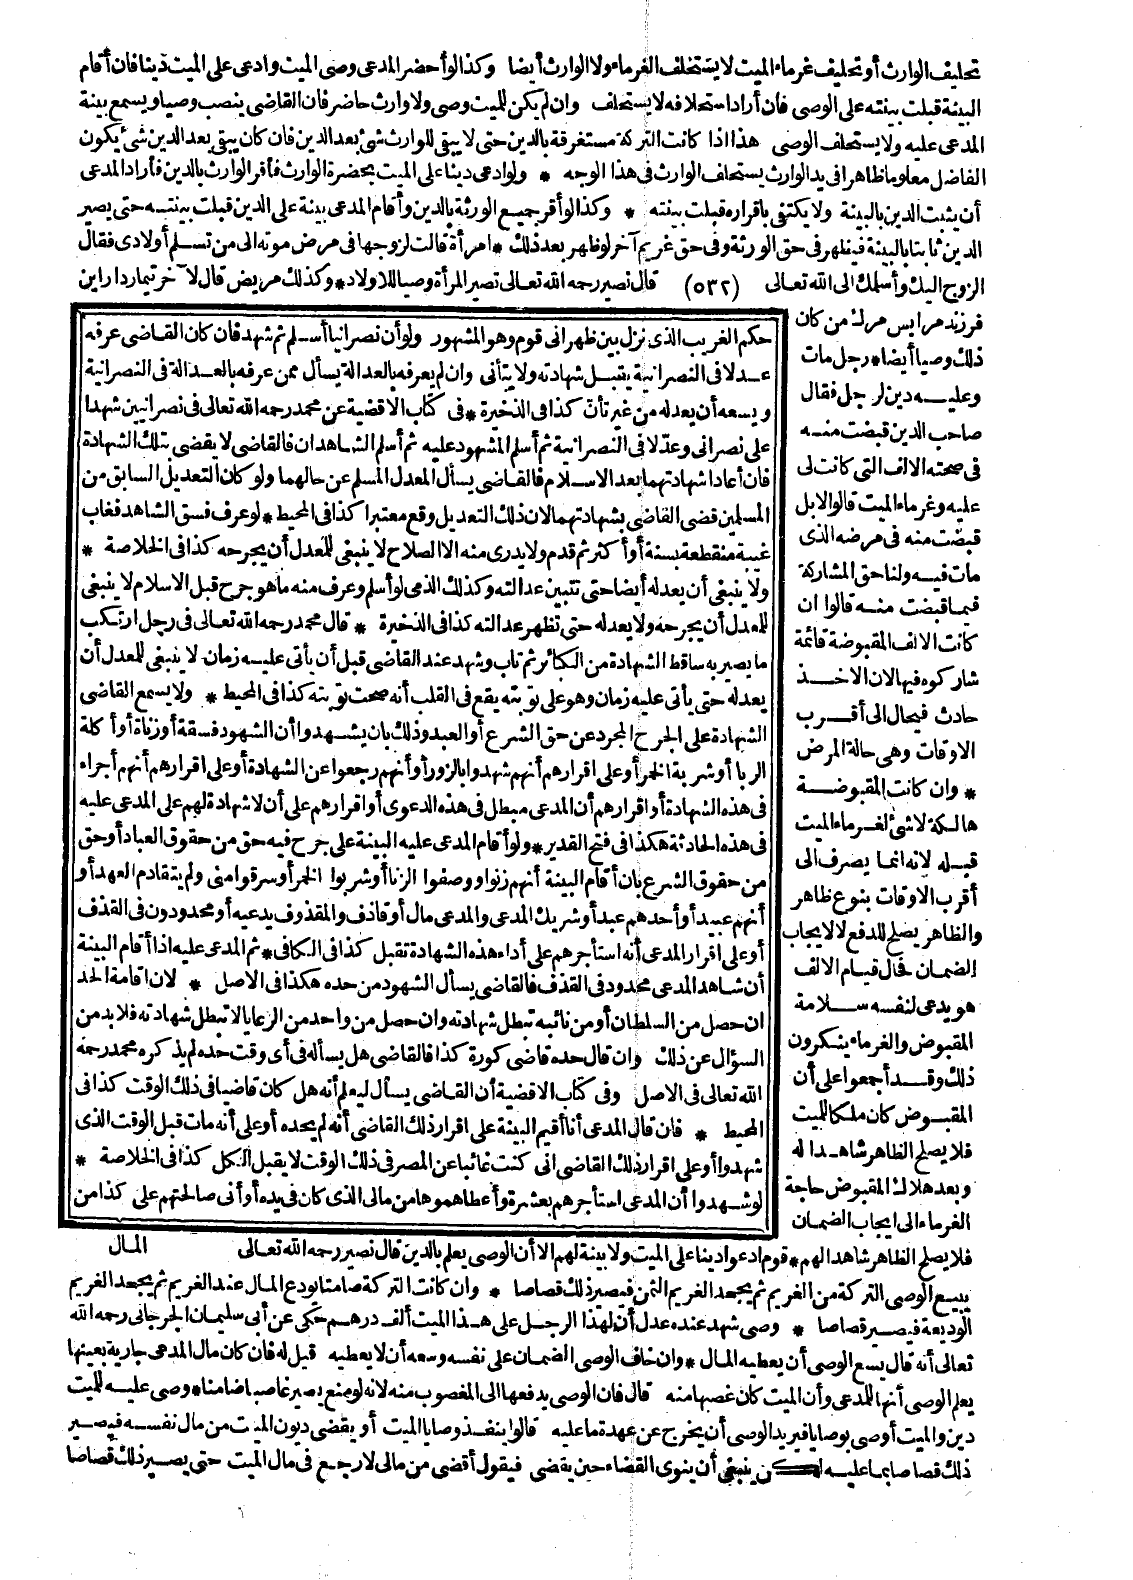 تحليف الوارث أو تحليف غرماء الميت لا يستحلف الغرماء ولا الوارث أيضا وكذا لو أحضر المدعى وصى الميت وادعى على الميت دينا فان أقام
البينة قبلت بينته على الوصى فان أراد استحلافه لا يستحلف وان لم يكن للميت وصى ولا وارث حاضر فان القاضى ينصب وصيا ويسمع بينة
المدعى عليه ولا يستحلف الوصى هذا اذا كانت التركة مستغرقة بالدين حتى لا يبقى للوارث شئ بعد الدين فان كان يبقى بعد الدين شئ يكون
الفاضل معلوما ظاهرا فى يد الوارث يستحلف الوارث فى هذا الوجه * ولو ادعى دينا على الميت بحضرة الوارث فأقر الوارث بالدين فأراد المدعى
أن يثبت الدين بالبينة ولا يكتفى باقراره قبلت بينته * وكذا لو أقر جميع الورثة بالدين وأقام المدعى بينة على الدين قبلت بينتـه حتى يصير
الدين ثابتا بالبينة فيظهر فى حق الورثة وفى حق غريم آخر لو ظهر بعد ذلك * امرأة قالت لزوجها فى مرض موته الى من تسلم أولادى فقال
الزوج اليك وأسلمك الى الله تعالى (٥٣٢) قال نصير رحمه الله تعالى تصير المرأة وصيا للاولاد * وكذلك مريض قال لآخر تيمار دار اين
فرزند مرا پس مرك من كان
ذلك وصيا أيضا * رجل مات
وعليـــه دين لرجل فقال
صاحب الدين قبضت منــه
فى صحته الالف التى كانت لى
عليه وغرماء الميت قالوا لا بل
قبضت منه فى مرضه الذى
مات فيـه ولنا حق المشاركة
فيما قبضت منـه قالوا ان
كانت الالف المقبوضة قائمة
شاركوه فيها لان الاخـــذ
حادث فيحال الى أقـــرب
الاوقات وهى حالة المرض
* وان كانت المقبوضـــة
هالكة لا شئ لغرماء الميت
قبـله لانه انما يصرف الى
أقرب الاوقات بنوع ظاهر
والظاهر يصلح للدفع لا لايجاب
الضمان فحال قيام الالف
هو يدعى لنفسه سـلامة
المقبوض والغرماء ينكرون
ذلك وقــد أجمعوا على أن
المقبـوض كان ملكا للميت
فلا يصلح الظاهر شاهـدا له
وبعد هلاك المقبوض حاجة
الغرماء الى ايجاب الضمان
حكم الغريب الذى نزل بين ظهرانى قوم وهو المشهور ولو أن نصرانيا أسـلم ثم شهد فان كان القاضى عرفه
عـدلا فى النصرانية يقبـل شهادته ولا يتأنى وان لم يعرفه بالعدالة يسأل ممن عرفه بالعـدالة فى النصرانية
ويسعه أن يعدله من غير تأن كذا فى الذخيرة * فى كتاب الاقضية عن محمد رحمه الله تعالى فى نصرانيين شهدا
على نصرانى وعدّلا فى النصرانية ثم أسلم المشهود عليه ثم أسلم الشاهدان فالقاضى لا يقضى بتلك الشهادة
فان أعادا شهادتهما بعد الاسـلام فالقاضى يسأل المعدل المسلم عن حالهما ولو كان التعديل السابق من
المسلمين قضى القاضى بشهادتهما لان ذلك التعديل وقع معتبرا كذا فى المحيط * لو عرف فسق الشاهد فغاب
غيبة منقطعة بسنة أو أكثر ثم قدم ولا يدرى منه الا الصلاح لا ينبغى للمعدل أن يجرحه كذا فى الخلاصة *
ولا ينبغى أن يعدله أيضا حتى تتبين عدالته وكذلك الذمى لو أسلم وعرف منه ما هو جرح قبل الاسلام لا ينبغى
للمعدل أن يجرحه ولا يعدله حتى تظهر عدالته كذا فى الذخيرة * قال محمد رحمه الله تعالى فى رجل ارتكب
ما يصير به ساقط الشهادة من الكبائر ثم تاب وشهد عند القاضى قبل أن يأتى عليـه زمان لا ينبغى للمعدل أن
يعدله حتى يأتى عليه زمان وهو على توبته يقع فى القلب أنه صحت توبته كذا فى المحيط * ولا يسمع القاضى
الشهادة على الجرح المجرد عن حق الشرع أو العبد وذلك بان يشـهدوا أن الشهود فسقة أو زناة أو أكلة
الربا أو شربة الخمر أو على اقرارهم أنهم شهدوا بالزور أو أنهم رجعوا عن الشهادة أو على اقرارهم أنهم أجراء
فى هذه الشهادة أو اقرارهم أن المدعى مبطل فى هذه الدعوى أو اقرارهم على أن لا شهادة لهم على المدعى عليه
فى هذه الحادثة هكذا فى فتح القدير * ولو أقام المدعى عليه البينة على جرح فيه حق من حقوق العباد أو حق
من حقوق الشرع بان أقام البينة أنهم زنوا ووصفوا الزنا أو شربوا الخمر أو سرقوا منى ولم يتقادم العهد أو
أنهم عبيد أو أحدهم عبد أو شريك المدعى والمدعى مال أو قاذف والمقذوف يدعيه أو محدودون فى القذف
أو على اقرار المدعى أنه استأجرهم على أداء هذه الشهادة تقبل كذا فى الكافى * ثم المدعى عليه اذا أقام البينة
أن شاهد المدعى محدود فى القذف فالقاضى يسأل الشهود من حده هكذا فى الاصل * لان اقامة الحد
ان حصل من السلطان أو من نائبه تبطل شهادته وان حصل من واحد من الرعايا لا تبطل شهادته فلا بد من
السؤال عن ذلك وان قال حده قاضى كورة كذا فالقاضى هل يسأله فى أى وقت حده لم يذكره محمد رحمه
الله تعالى فى الاصل وفى كتاب الاقضية أن القاضى يسأل ليعلم أنه هل كان قاضيا فى ذلك الوقت كذا فى
المحيط * فان قال المدعى أنا أقيم البينة على اقرار ذلك القاضى أنه لم يحده أو على أنه مات قبل الوقت الذى
شهدوا أو على اقرار ذلك القاضى انى كنت غائبا عن المصر فى ذلك الوقت لا يقبل الكل كذا فى الخلاصة *
لو شهدوا أن المدعى استأجرهم بعشرة وأعطاهموها من مالى الذى كان فى يده أو أنى صالحتهم على كذا من
المال
فلا يصلح الظاهر شاهدا لهم * قوم ادعوا دينا على الميت ولا بينة لهم الا أن الوصى يعلم بالدين قال نصير رحمه الله تعالى
يبيع الوصى التركة من الغريم ثم يجحد الغريم الثمن فيصير ذلك قصاصا * وان كانت التركة صامتا يودع المال عند الغريم ثم يجحد الغريم
الوديعة فيصـير قصاصا * وصى شهد عنده عدل أن لهذا الرجـل على هـذا الميت ألف درهـم حكى عن أبى سليمان الجرجانى رحمه الله
تعالى أنه قال يسع الوصى أن يعطيه المال * وان خاف الوصى الضمان على نفسه وسعه أن لا يعطيه قيل له فان كان مال المدعى جارية بعينها
يعلم الوصى أنها للمدعى وأن الميت كان غصبها منه قال فان الوصى يدفعها الى المغصوب منه لانه لو منع يصير غاصبا ضامنا * وصى عليـه للميت
دين والميت أوصى بوصايا فيريد الوصى أن يخرج عن عهدة ما عليه قالوا ينفـذ وصايا الميت أو يقضى ديون الميت من مال نفسـه فيصـير
ذلك قصاصا بما عليـه لكن ينبغى أن ينوى القضاء حين يقضى فيقول أقضى من مالى لارجـع فى مال الميت حتى يصـير ذلك قصاصا